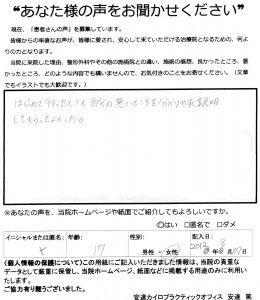 “あなた様の声をお聞かせください”
現在、「患者さんの声」を募集しています。
皆様からの率直なお声が、皆様に愛され、安心して来ていただける治療院となるための、何よりの力となります。
当院に来院した理由、整形外科やその他の施術院との違い、施術の感想、良かったところ、悪かったところ、どのような内容でも構いませんので、お気付きのことをお寄せください。（文章でもイラストでも大歓迎です）。
はじめて行ったとき自分の悪いところを分かりやすく説明
してもらってよかった。
※あなたの声を、当院ホームページや紙面でご紹介してもよろしいですか。
○はい ○匿名で ○ダメ
イニシャルまたは匿名：
年齢：
性別：
記入日
17
男性・女性
2013
〈個人情報の保護について〉この用紙にご記入いただきました情報は、当院の貴重な
データとして厳重に保管し、当院ホームページ、紙面などに掲載する用途のみに利用い
たします。
ご協力有り難うございました。
安達カイロプラクティックオフィス 安達 篤